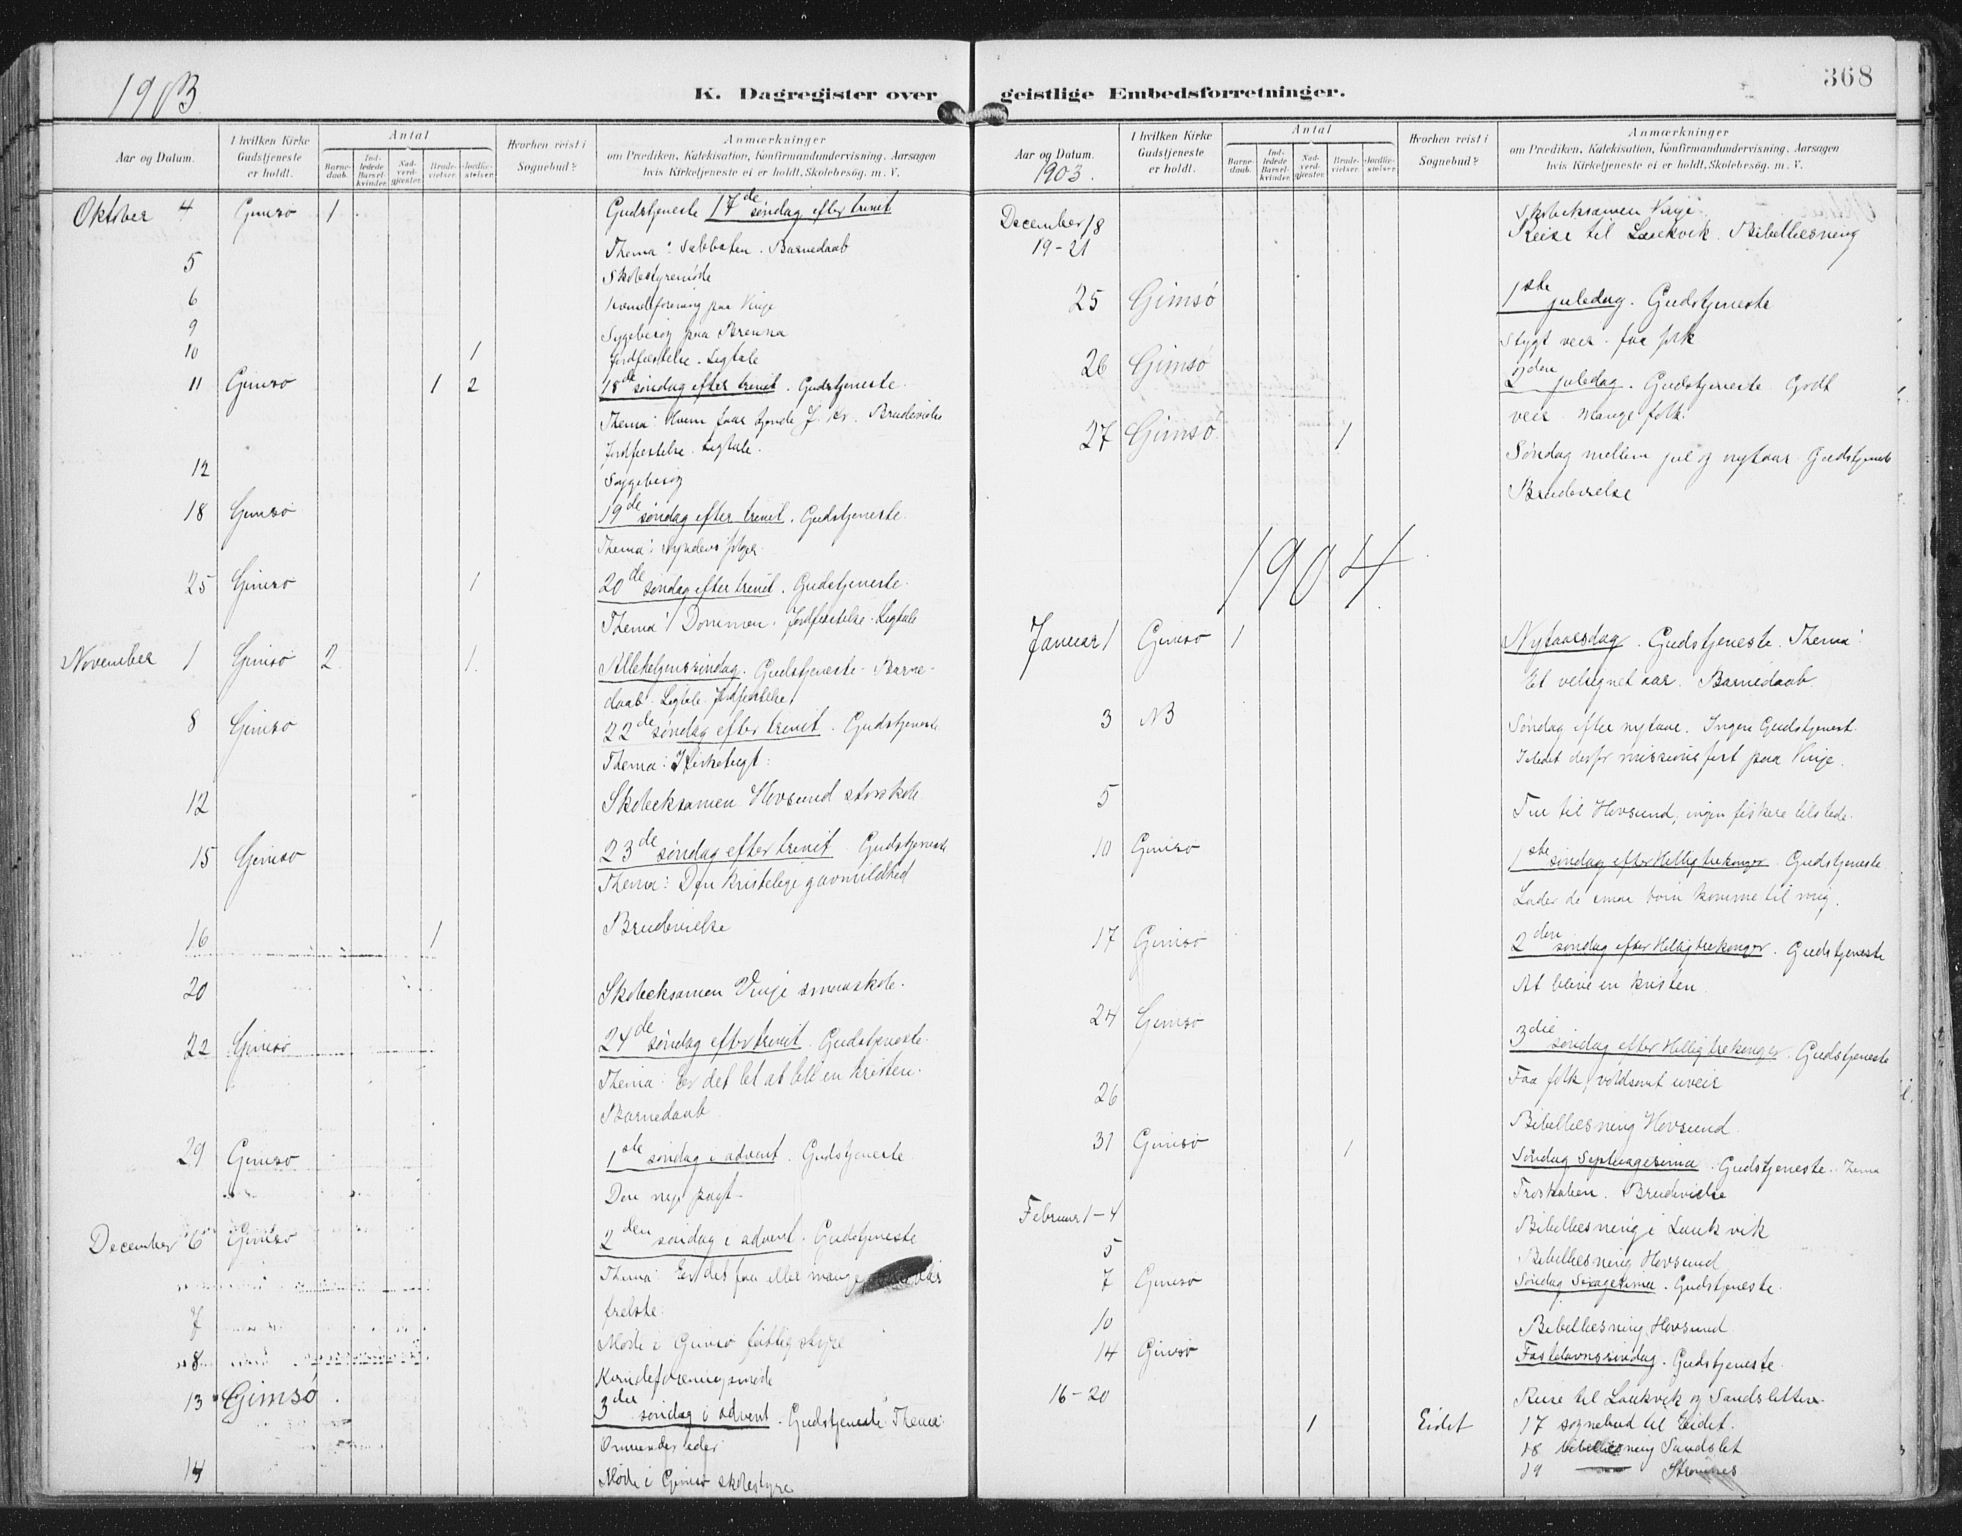 1903
K. Dagregister over
Aar og Datum.
I hvilken Kirke Gudstjeneste er holdt.
Antal
Barne-daab.
Ind-ledede Barsel-kvinder.
Nad-verd-gjester.
Brude-vielser.
Jordfæ-stelser.
Hvorhen reist i Sognebud?
Anmærkninger
om Prædiken, Katekisation, Konfirmandundervisning, Aarsagen
hvis Kirketjeneste ei er holdt, Skolebesøg. m. V.
Oktober 4 Gimsø 1 Gudstjeneste 17de søndag efter trinit
Thema: Sabbaten. Barnedaab
5 Skolestyremøde
6 Kvindeforening paa Vinje
9 Sygebesøg paa Brenna
10 1 Jordfæstelse. Ligtale
11 Gimsø 1 2 18de søndag efter trinit. Gudstjeneste.
Thema: Hvem faar kjende J. Kr. Brudevielse
Jordfæstelse. Ligtale.
12 Sygebesøg
18 Gimsø 19de søndag efter trinit. Gudstjeneste.
Thema: Syndens
25 Gimsø 1 20de søndag efter trinit. Gudstjeneste.
Thema: Dommen. Jordfæstelse. Ligtale
November 1 Gimsø 2 1 Allehelgenssøndag. Gudstjeneste - Barne-
daab. Ligtale. Jordfæstelse
8 Gimsø 22de søndag efter trinit. Gudstjeneste
Thema: Kirketugt:
12 Skoleeksamen Hovsund storskole
15 Gimsø 23de søndag efter trinit. Gudstjeneste
Thema: Den kristelige gavmildhed
16 1 Brudevielse
20 Skoleeksamen Vinje smaaskole.
22 Gimsø 24de søndag efter trinit. Gudstjeneste.
Thema: Er det let at bli en kristen.
Barnedaab.
29 Gimsø 1ste søndag i advent. Gudstjeneste
Den nye pagt.
December 6 Gimsø 2den søndag i advent. Gudstjeneste
Thema: Er det faa eller mange
frelste:
7 Møde i Gimsø fattigstyre
8 Kvindeforeningsmøde
13 Gimsø 3die søndag i advent. Gudstjeneste Thema:
14 Møde i Gimsø skolestyre
geistlige Embedsforretninger.
368
Aar og Datum.
1903.
I hvilken Kirke Gudstjeneste er holdt.
Antal
Barne-daab.
Ind-ledede Barsel-kvinder.
Nad-verd-gjester.
Brude-vielser.
Jordfæ-stelser.
Hvorhen reist i Sognebud?
Anmærkninger
om Prædiken, Katekisation, Konfirmandundervisning, Aarsagen
hvis Kirketjeneste ei er holdt, Skolebesøg. m. V.
December 18 Skoleeksamen Vinje.
19-21 Reise til Laukvik. Bibellæsning
25 Gimsø 1ste juledag. Gudstjeneste
stygt veir. faa folk
26 Gimsø 2den juledag. Gudstjeneste Godt
veir mange folk.
27 Gimsø 1 Søndag mellem jul og nytaar. Gudstjeneste
Brudevielse
1904.
Januar 1 Gimsø 1 Nytaarsdag. Gudstjeneste. Thema:
Et velsignet aar. Barnedaab.
3 NB Søndag efter nytaar. Ingen Gudstjenest.
Istedet derfor missionsfest paa Vinje.
5 Tur til Hovsund, ingen fiskere tilstede.
10 Gimsø 1ste søndag efter Hellig trekonger. Gudstjeneste.
Lader de smaa børn komme til mig.
17 Gimsø 2den søndag efter Hellig trekonger. Gudstjeneste
At blive en kristen.
24 Gimsø 3die søndag efter Hellig trekonger. Gudstjeneste
Faa folk, voldsomt uveir
26 Bibellæsning Hovsund.
31 Gimsø 1 Søndag Septuagesima. Gudstjeneste. Thema
Troskaben. Brudevielse
Februar 1-4 Bibellæsning i Laukvik
5 Bibellæsning Hovsund
7 Gimsø Søndag Sexagesima. Gudstjeneste.
10 Bibellæsning Hovsund.
14 Gimsø Fastelavnssøndag. Gudstjeneste.
16-20 Reise til Laukvik og Sandsletten.
1 Eidet 17 sognebud til Eidet.
18 bibellæsning Sandslet
19 — Strømnes